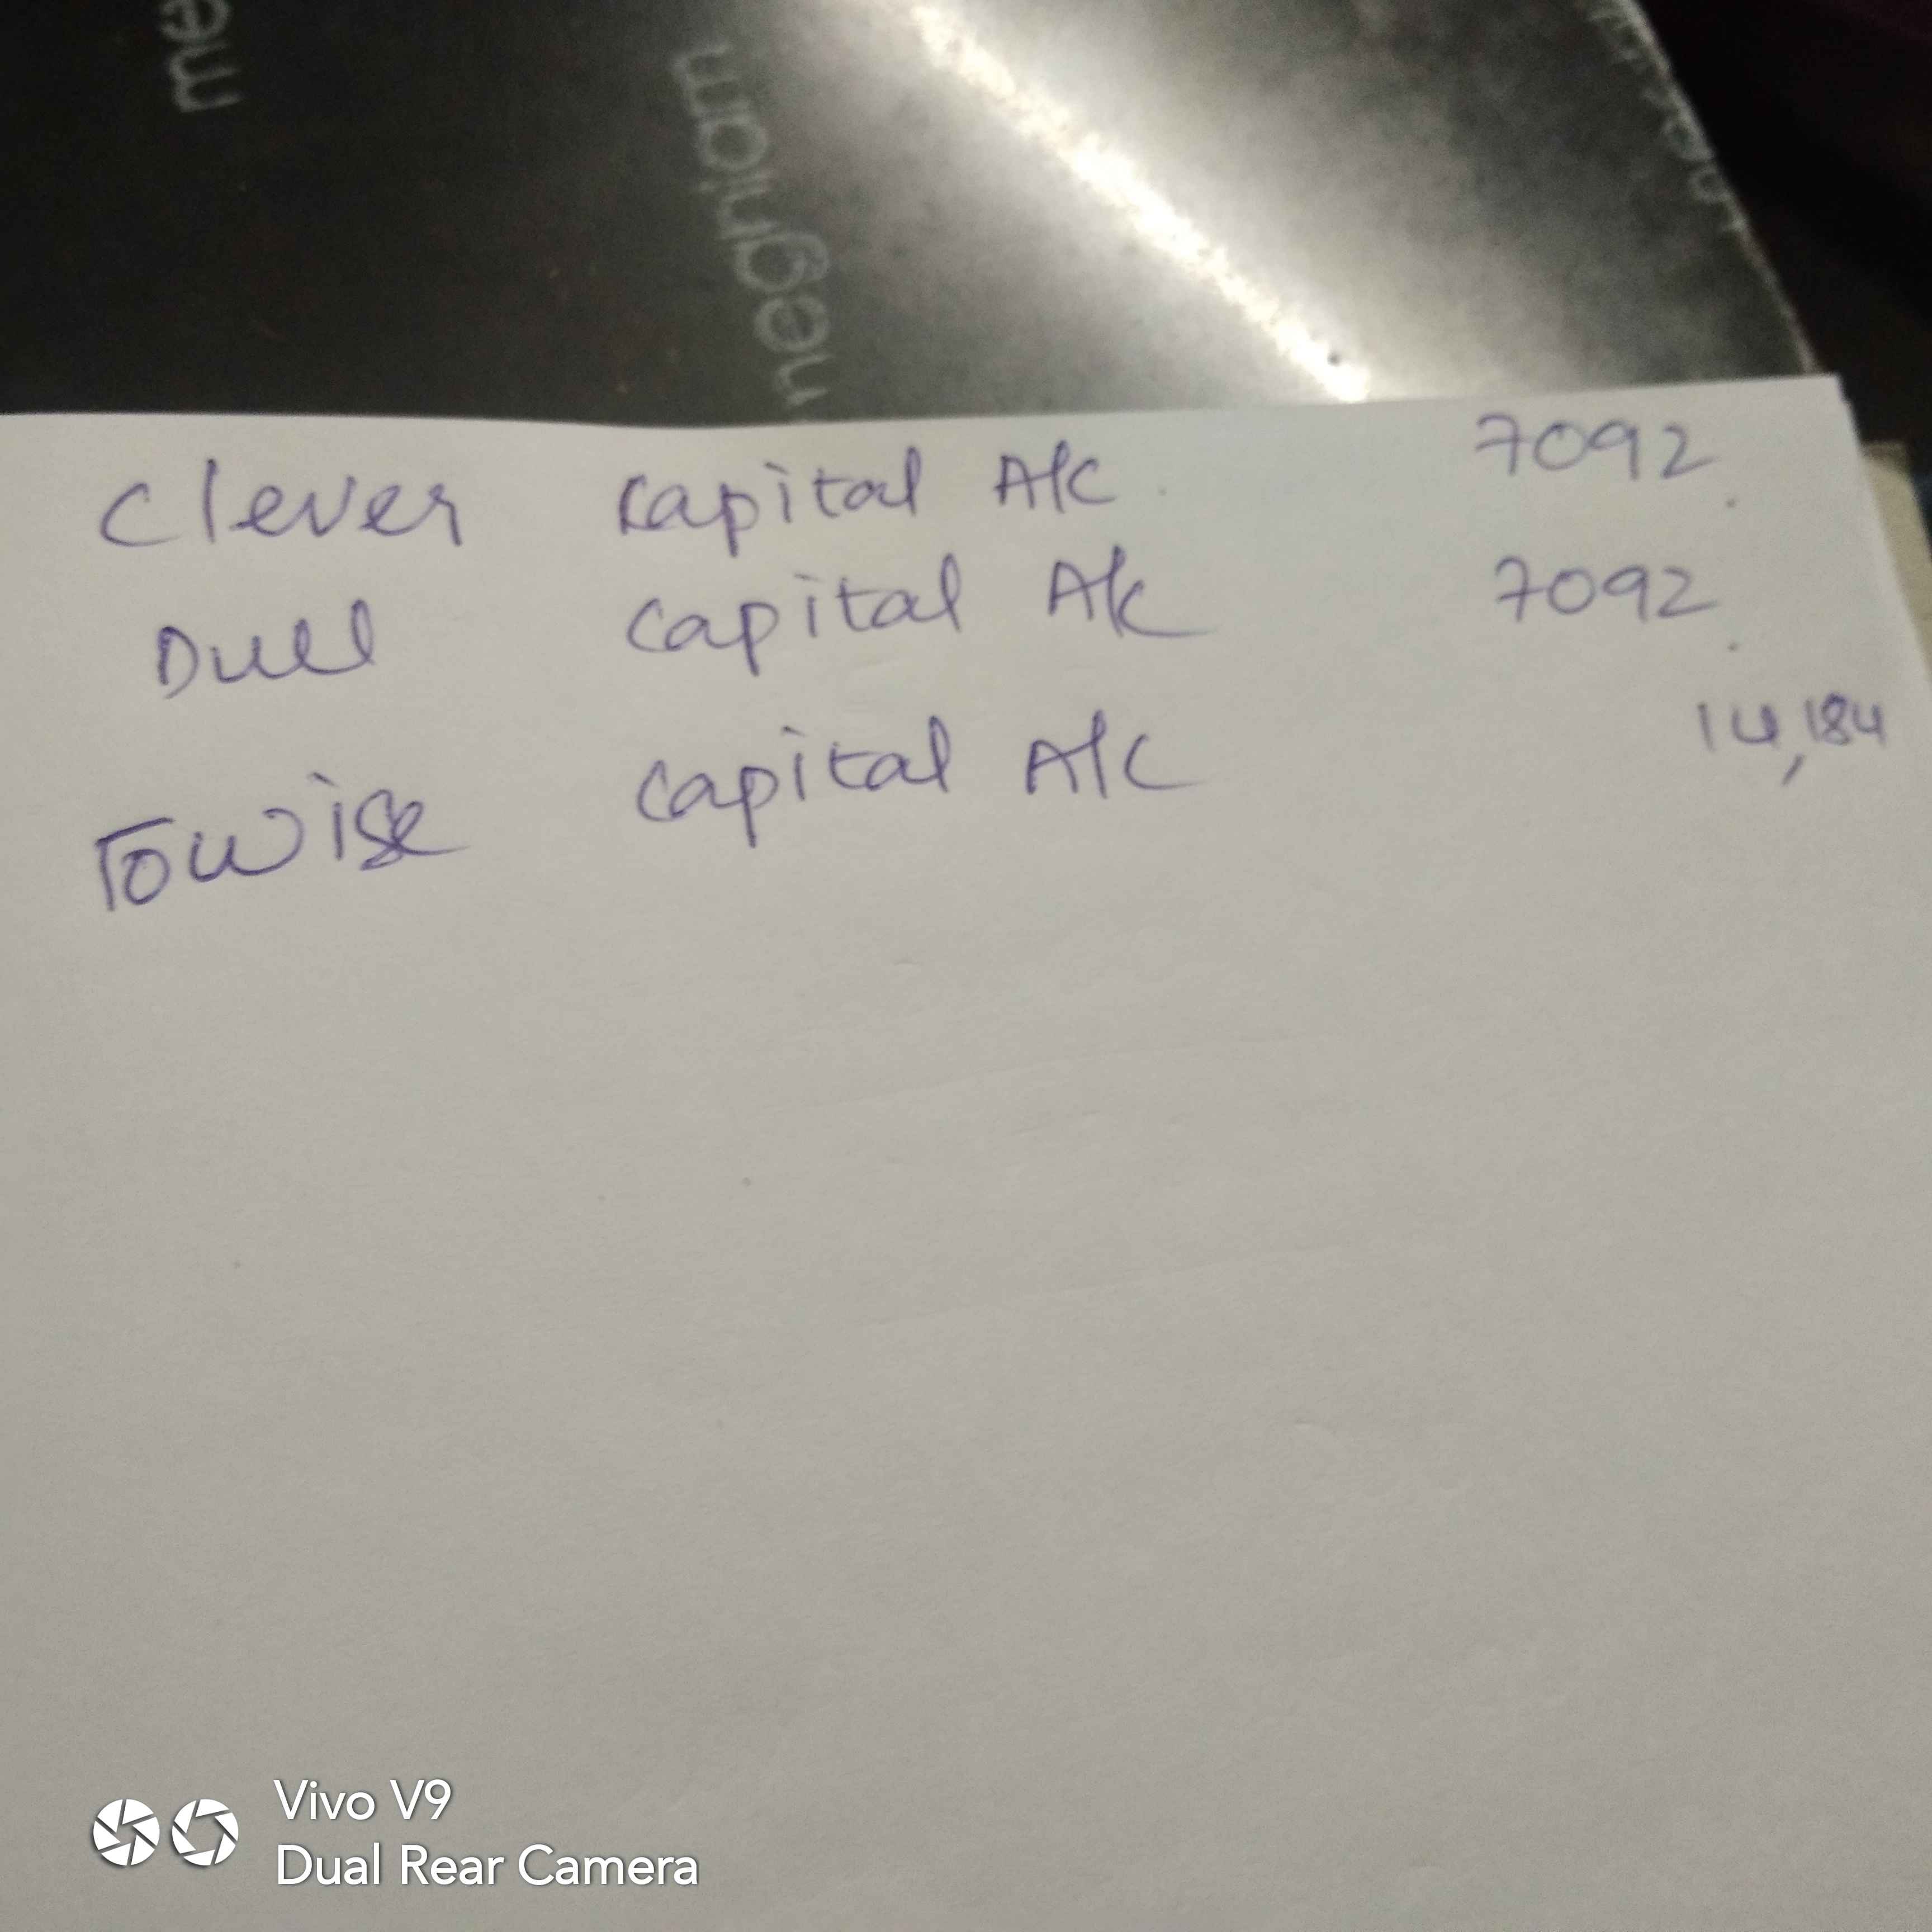 me
meghdm
Clever Capital A/C. 7092.
Dull Capital A/c 7092.
To wise Capital A/C 14,184
Vivo V9
Dual Rear Camera